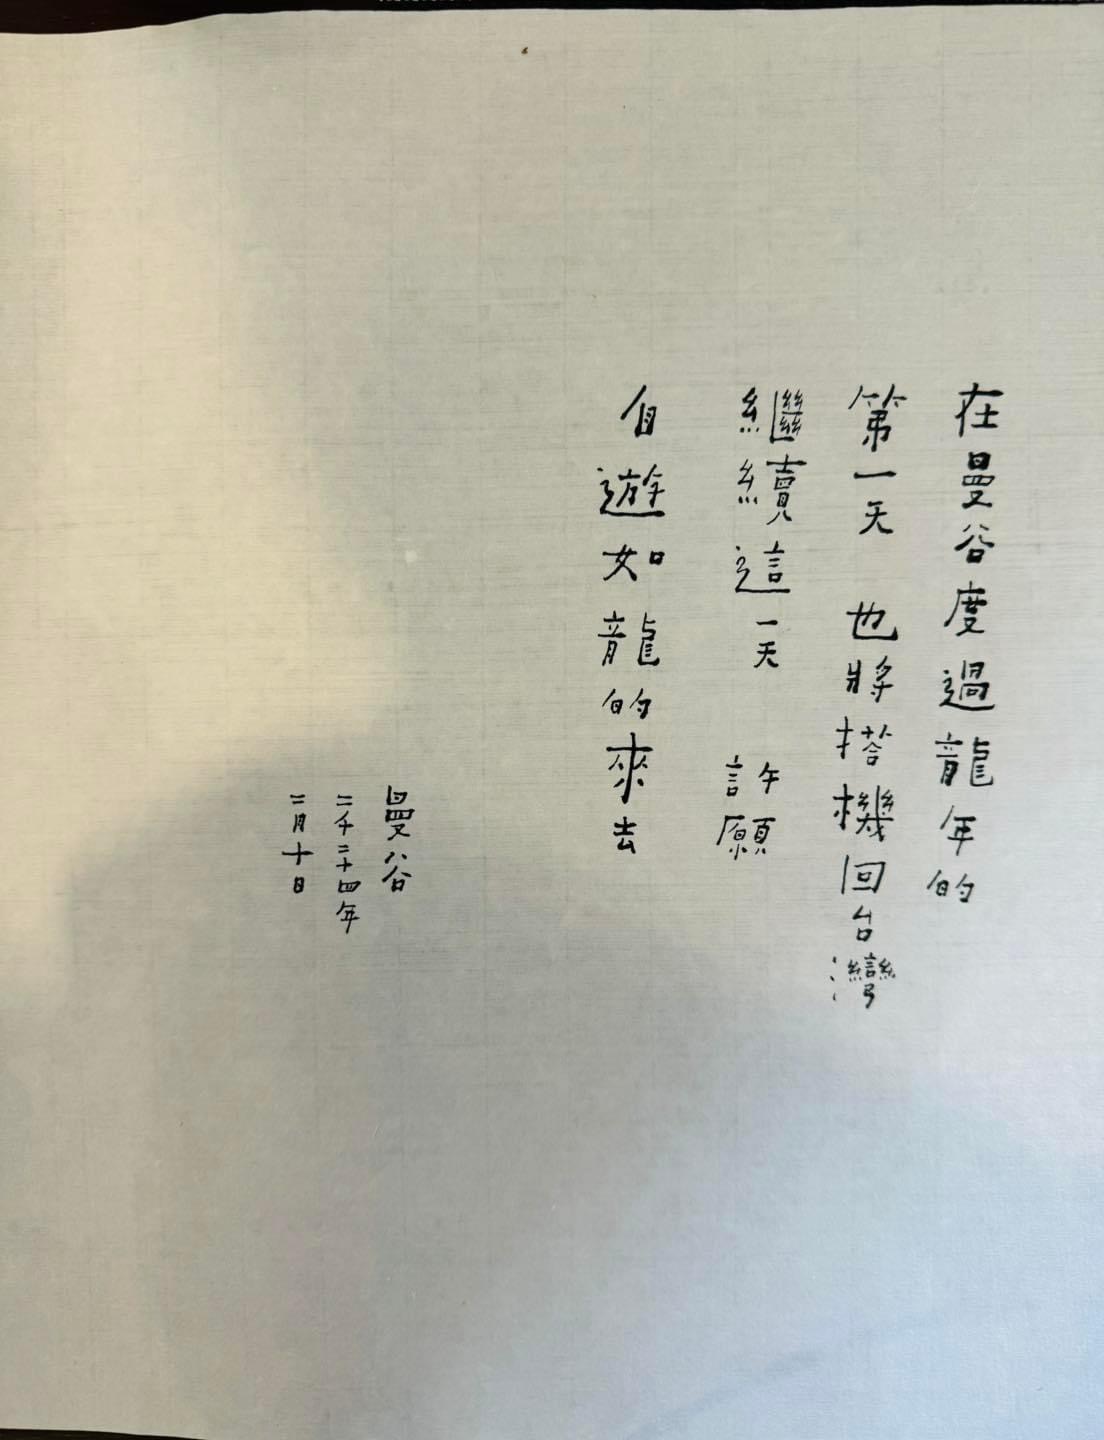 在曼谷度過龍年的
第一天 也將搭機回台灣
繼續這一天 許願
自遊如龍的來去
曼谷
二千二十四年
二月十日